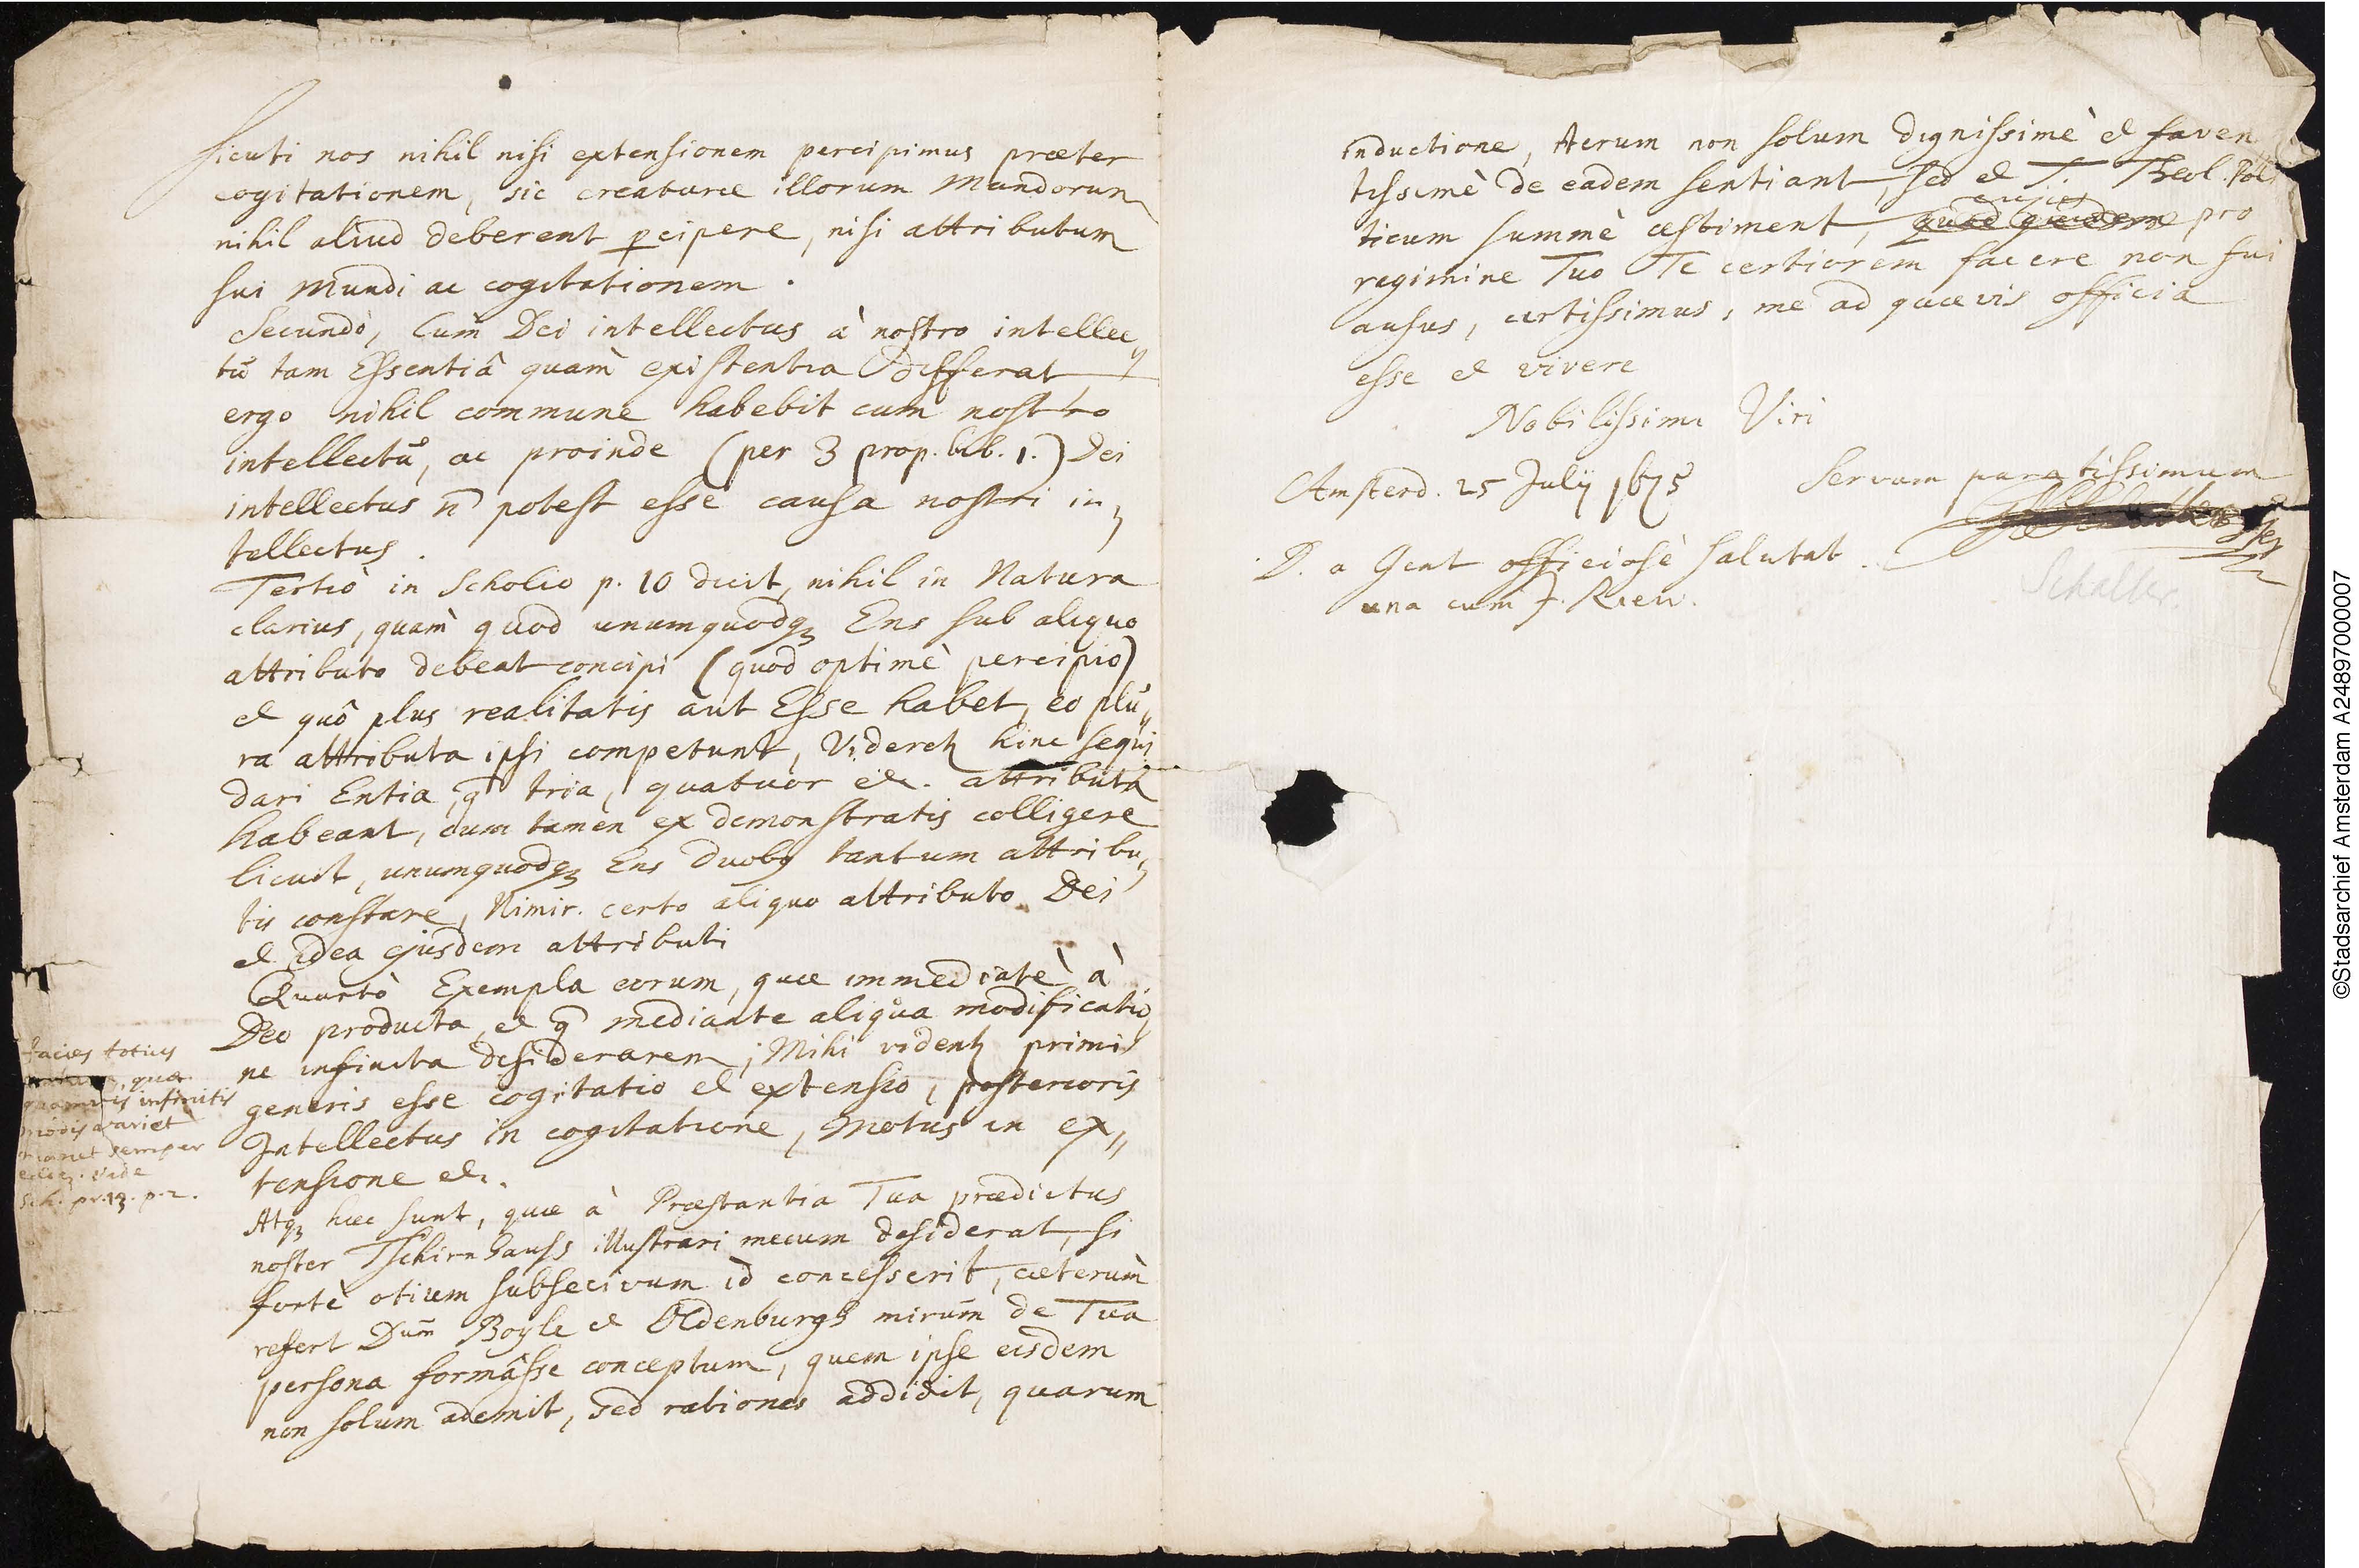 sicuti nos nihil nisi extensionem percipimus præter
cogitationem, sic creaturæ illorum Mundorum
nihil aliud deberent pcipere, nisi attributum
sui Mundi ac cogitationem.
Secundò, Cum Dei intellectus à nostro intellec„
tũ tam Essentiâ quàm existentia differat,
ergo nihil commune habebit cum nostro
intellectũ, ac proinde (per 3 prop. lib. 1.) Dei
intellectus ñ potest esse causa nostri in„
tellectus.
Tertiò in Scholio p. 10 dicit, nihil in Natura
clarius, quàm quod unumquodqꝫ Ens sub aliquo
attributo debeat concipi (quod optimè percipio)
et quô plus realitatis aut Esse habet, eo plũ„
ra attributa ipsi competunt, Videretꝫ hinc sequi
dari Entia, q̃ tria, quatuor etc. attributa
habeant, cum tamen ex demonstratis colligere
licuit, unumquodqꝫ Ens duobꝫ tantum attribu„
tis constare, Nimir. certo aliquo attributo Dei
et idea ejusdem attributi
Quartò Exempla eorum, quæ immediatè à
Deo producta, et q̃ mediante aliqua modificatio„
ne infinita desiderarem; Mihi videntꝫ primi
generis esse cogitatio et extensio, posterioris
Intellectus in cogitatione, Motus in ex„
tensione etc.
facies totius
naturæ, quæ
quamvis infinitis
modis variet
manet semper
eadē. vide
Sch. pr. 13. p. 2.
Atqꝫ hæc sunt, quæ à Præstantia Tua prædictus
noster Tschirnhauss illustrari mecum desiderat, si
fortè otium subsecivum id concesserit, cæterùm
refert Dum̃ Boyle et Oldenburgh mirum̃ de Tua
persona formâsse conceptum, quem ipse eisdem
non solum ademit, sed rationes addidit, quarum
inductione, iterum non solum dignissimè et faven
tissimè de eadem sentiant, sed et T. Theol. Poli
ticum summè æstiment, cujus pro
regimine Tuo Te certiorem facere non sui
ausus, certissimus, me ad quævis officia
esse et vivere
Nobilissime Viri
Amsterd. 25 July 1675 Servum paratissimum
D. a Gent officiosè salutat
una cum J. Riew.
Schaller.